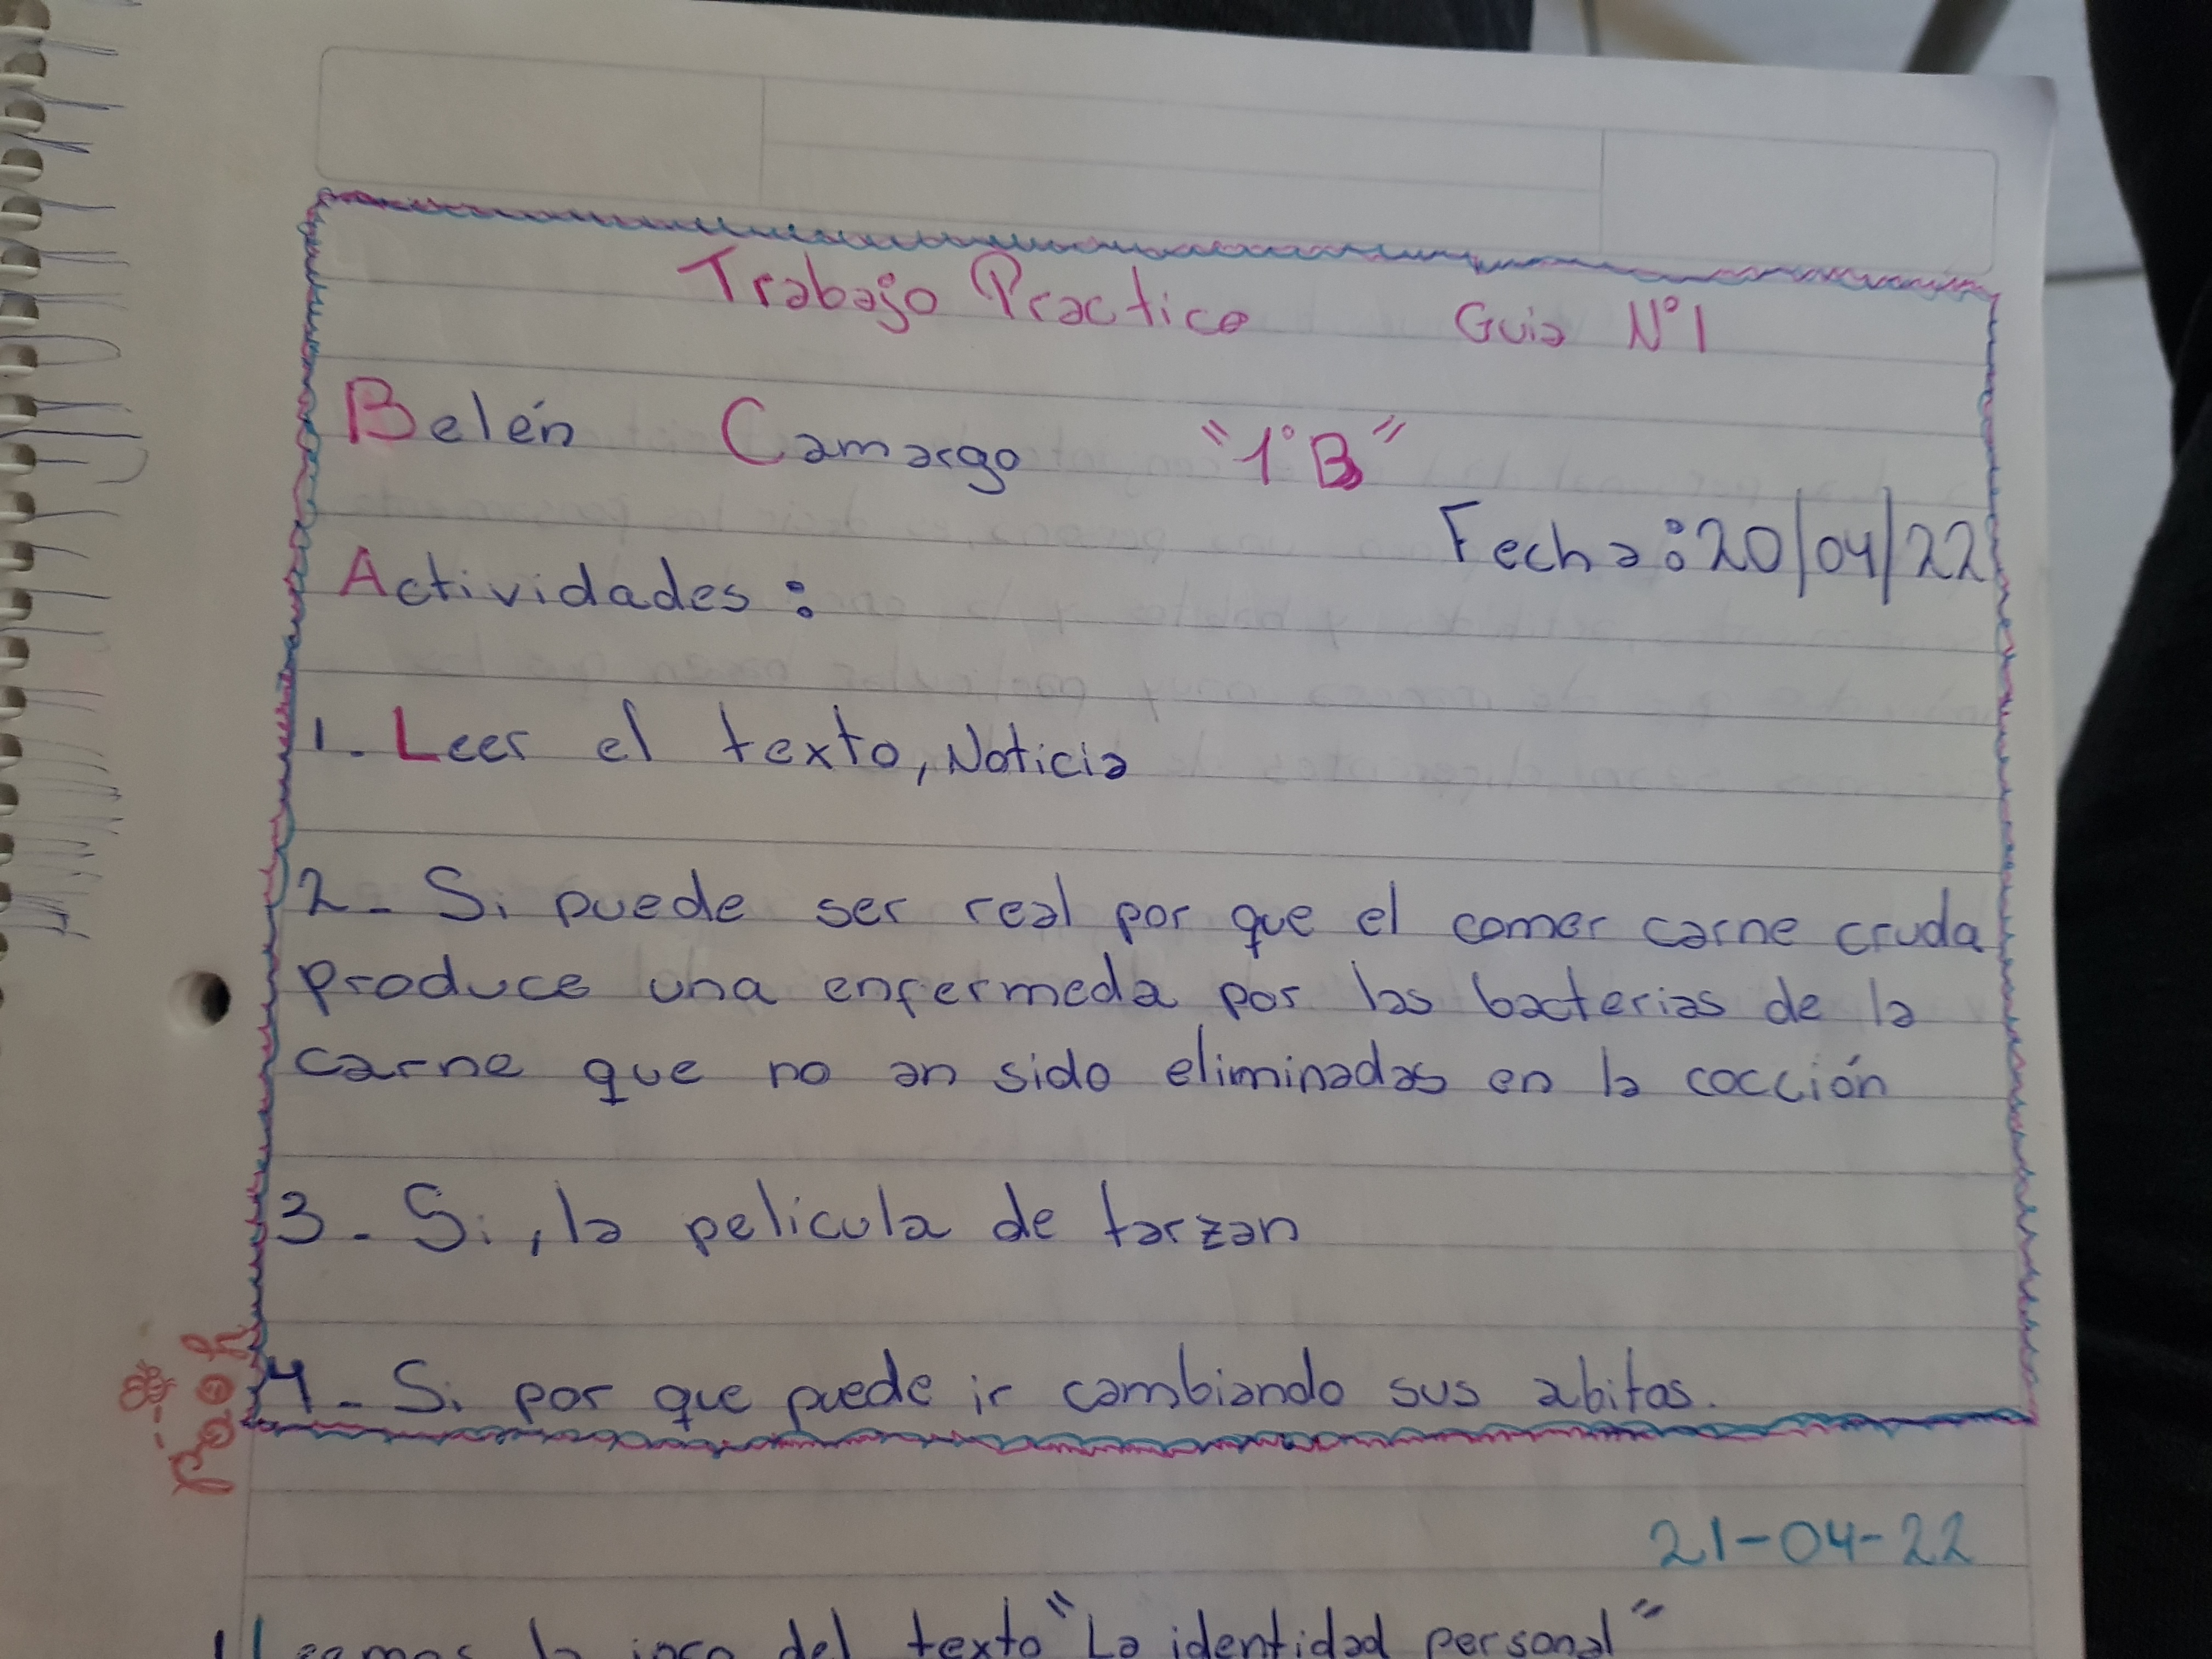 Trabajo Practico Guia N°1
Belén Camargo "1°B"
Fecha:20/04/22
Actividades:
1. Leer el texto, Noticia
2- Si puede ser real por que el comer carne cruda
produce una enfermeda por las bacterias de la
carne que no an sido eliminadas en la cocción
3- Si, la pelicula de tarzan
4- Si por que puede ir cambiando sus abitos.
Pooh
21-04-22
la del texto "La identidad personal"